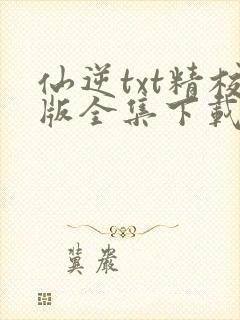 仙逆txt精校
版全集下载
冀嚴